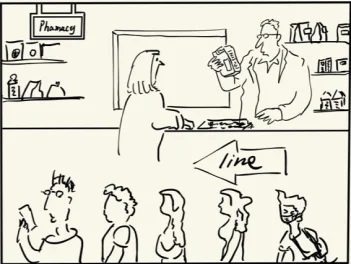 Pharmacy
line